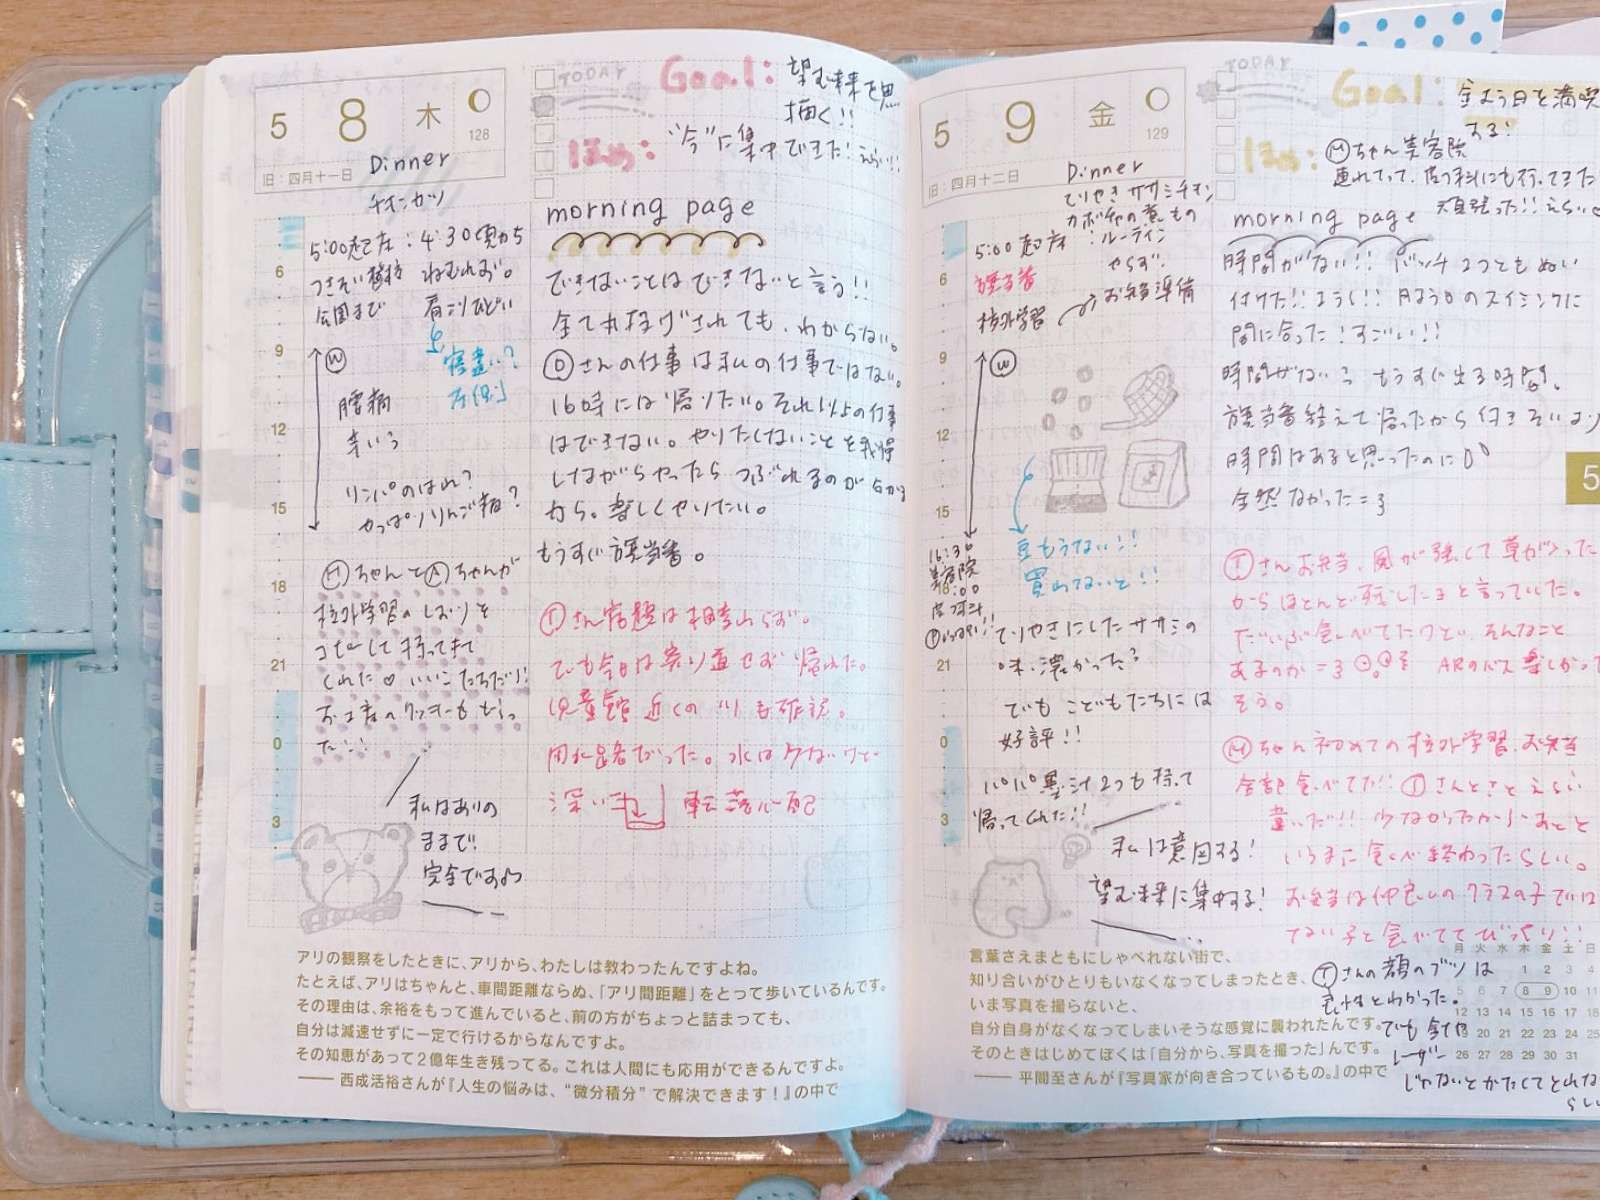 5 8 木
128
旧：四月十一日
Dinner
チキンカツ
TODAY
Goal: 望む未来を思
描く!!
ほめ: "今"に集中できた! えらい!!
5:00起床 : 4:30頃から
つきそい登校 ねむれず。
公園まで 肩こりひどい
寝違い?
左側
6
9
12
15
18
21
0
3
Ⓦ
腰痛
辛い
リンパのはれ?
やっぱりりんご病?
Ⓗちゃんと Ⓐちゃんが
校外学習のしおりを
コピーして持ってきて
くれた♡いいこたちだ!
お土産のクッキーももらっ
た!!
私はありの
ままで
完全ですよ
morning page
できないことはできないと言う!!
全て丸投げされても、わからない。
Ⓓさんの仕事は私の仕事ではない。
16時には帰りたい。それ以上の仕事
はできない。やりたくないことを我慢
しながらやったら つぶれるのが分かる
から。楽しくやりたい。
もうすぐ旗当番。
Ⓣさん宿題は相変わらず。
でも今日は寄り道せず帰れた。
児童館 近くの川も確認。
用水路だった。水は少ないけど
深い 転落心配
アリの観察をしたときに、アリから、わたしは教わったんですよね。
たとえば、アリはちゃんと、車間距離ならぬ、「アリ間距離」をとって歩いているんです。
その理由は、余裕をもって進んでいると、前の方がちょっと詰まっても、
自分は減速せずに一定で行けるからなんですよ。
その知恵があって2億年生き残ってる。これは人間にも応用ができるんですよ。
—— 西成活裕さんが『人生の悩みは、“微分積分”で解決できます！』の中で
5 9 金
129
旧：四月十二日
Dinner
てりやきササミチキン
カボチャの煮もの
TODAY
Goal: 金よう日を満喫
する!
ほめ: Ⓜちゃん美容院
連れてって、皮フ科にも行ってきた
頑張った!! えらい
5:00起床 : ルーティン
やらず。
旗当番
校外学習 お弁当準備
6
9
12
15
18
21
0
3
Ⓦ
豆もうない!!
買わないと!!
16:30
美容院
18:00
皮フ科
てりやきにしたササミの
味、濃かった?
でも こどもたちには
好評!!
パパ墨汁2つも持って
帰ってくれた!!
私は意図する!
望む未来に集中する!
morning page
時間がない!! バッチ2つともぬい
付けた!! ようく!! 月よう日のスイミングに
間に合った! すごい!!
時間がない もうすぐ出る時間。
旗当番終えて帰ったから付きそいより
時間はあると思ったのに
全然なかった=3
Ⓣさんお弁当、風が強くて草が入った
からほとんど残したまと言っていた。
だいぶ食べてたけど、そんなこと
あるのか=3 ARのバス楽しかった
そう。
Ⓜちゃん初めての校外学習、お弁当
全部食べてた!! Ⓣさんとさとえらい
違いだ!! 少なかったか
いうまに食べ終わったらしい。
お弁当は仲良しのクラスの子では
ない子と食べててびっくり!!
Ⓣさんの顔のブツは
良性とわかった。
でも
レーザー
じゃないとかたくてとれない
らしい
5
月 火 水 木 金 土 日
1 2 3 4
5 6 7 8 9 10 11
12 13 14 15 16 17 18
19 20 21 22 23 24 25
26 27 28 29 30 31
言葉さえまともにしゃべれない街で、
知り合いがひとりもいなくなってしまったとき、
いま写真を撮らないと、
自分自身がなくなってしまいそうな感覚に襲われたんです。
そのときはじめてぼくは「自分から、写真を撮った」んです。
—— 平間至さんが『写真家が向き合っているもの。』の中で